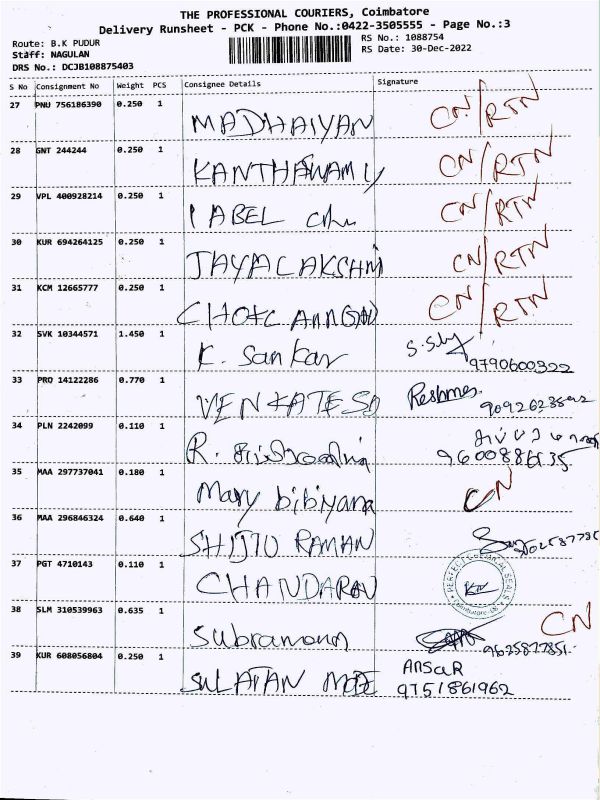 THE PROFESSIONAL COURIERS, Coimbatore
Delivery Runsheet - PCK - Phone No.:0422-3505555 - Page No.:3
Route: B.K PUDUR
Staff: NAGULAN
DRS No.: DCJB108875403
RS No.: 1088754
RS Date: 30-Dec-2022
S No Consignment No Weight PCS Consignee Details Signature
27 PNU 756186390 0.250 1 MADHAIYAN CN/RTN
28 GNT 244244 0.250 1 KANTHASWAMY CN/RTN
29 VPL 400928214 0.250 1 LABEL CN/RTN
30 KUR 694264125 0.250 1 JAYALAKSHMI CN/RTN
31 KCM 12665777 0.250 1 CN/RTN
32 SVK 10344571 1.450 1 K. Sankar 9790600322
33 PRQ 14122286 0.770 1 VENKATESO Reshmes.
34 PLN 2242099 0.110 1 R.
35 MAA 297737041 0.180 1 Mary bibiyana CN
36 MAA 296846324 0.640 1 SHIJU RAMAN
37 PGT 4710143 0.110 1 CHANDARAN PERFECT CHEMICAL SEALS
38 SLM 310539963 0.635 1 Subramonn CN
9625877851
39 KUR 608056804 0.250 1 SULATAN ANSAR
9751861962